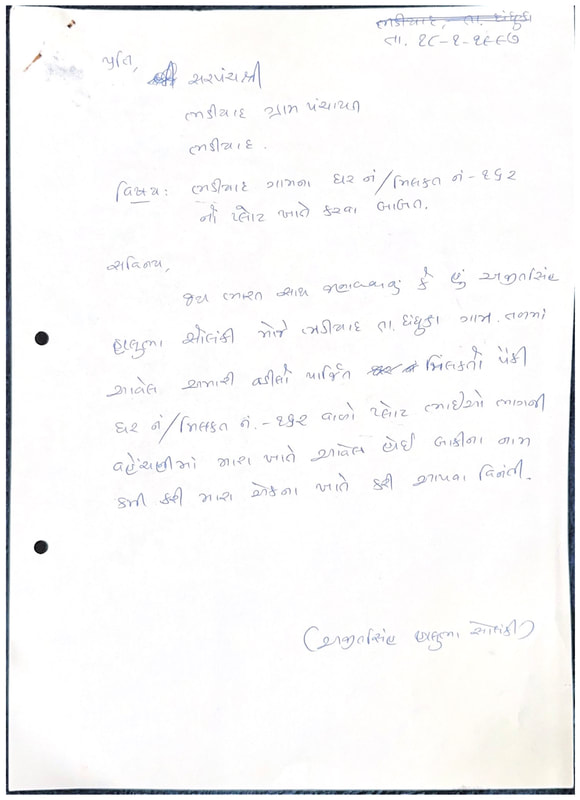 ભડીયાદ, તા. ધંધુકા
તા. ૨૮-૧-૧૯૯૭
પ્રતિ,
સરપંચશ્રી
ભડીયાદ ગ્રામ પંચાયત
ભડીયાદ.
વિષય: ભડીયાદ ગામના ઘર નં/મિલકત નં-૧૬૨
નો પ્લોટ ખાતે કરવા બાબત.
સવિનય,
જય ભારત સાથ જણાવવાનું કે હું અજીતસિંહ
હાલુભા સોલંકી મોજે ભડીયાદ તા. ધંધુકા ગામ. તળમાં
આવેલ અમારી વડીલો પાર્જિત મિલકતો પૈકી
ઘર નં/મિલકત નં.-૧૬૨ વાળો પ્લોટ ભાઈઓ ભાગની
વહેંચણીમાં મારા ખાતે આવેલ હોઈ બાકીના નામ
કમી કરી મારા એકના ખાતે કરી આપવા વિનંતી.
(અજીતસિંહ હાલુભા સોલંકી)